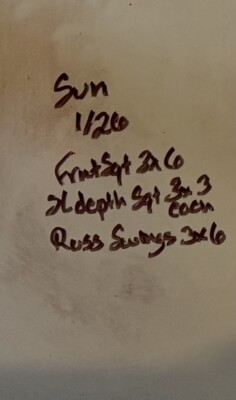 Sun
1/26
Frnt Sqt 3x6
2L depth Sqt 3x3
each
Russ Swings 3x6